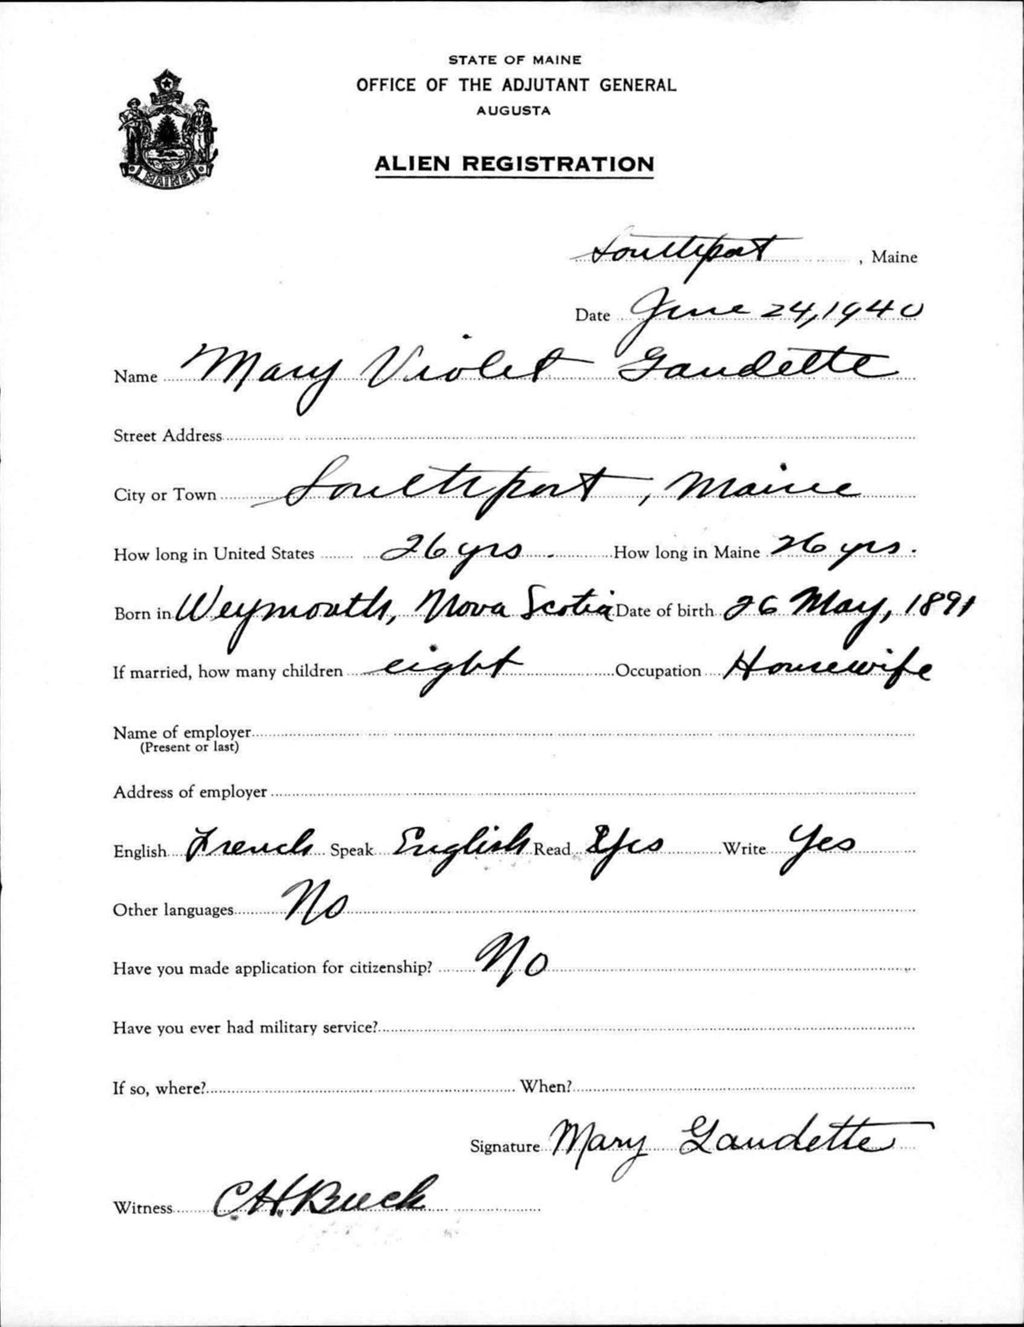 STATE OF MAINE
OFFICE OF THE ADJUTANT GENERAL
AUGUSTA
ALIEN REGISTRATION
MAINE
Southport, Maine
Date June 24, 1940
Name Mary Violet Gaudette
Street Address
City or Town Southport, Maine
How long in United States 26 yrs. How long in Maine 26 yrs.
Born in Weymouth, Nova Scotia Date of birth 26 May, 1891
If married, how many children eight Occupation Housewife
Name of employer
(Present or last)
Address of employer
English French Speak English Read Yes Write Yes
Other languages No
Have you made application for citizenship? No
Have you ever had military service?
If so, where? When?
Signature Mary Gaudette
Witness C H Buck